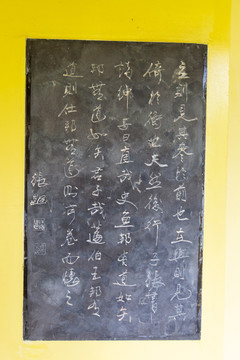 立則見其參於前也在輿則見其
倚於衡也夫然後行子張書
諸紳子曰直哉史魚邦有道如矢
邦無道如矢君子哉蘧伯玉邦有
道則仕邦無道則可卷而懷之
張